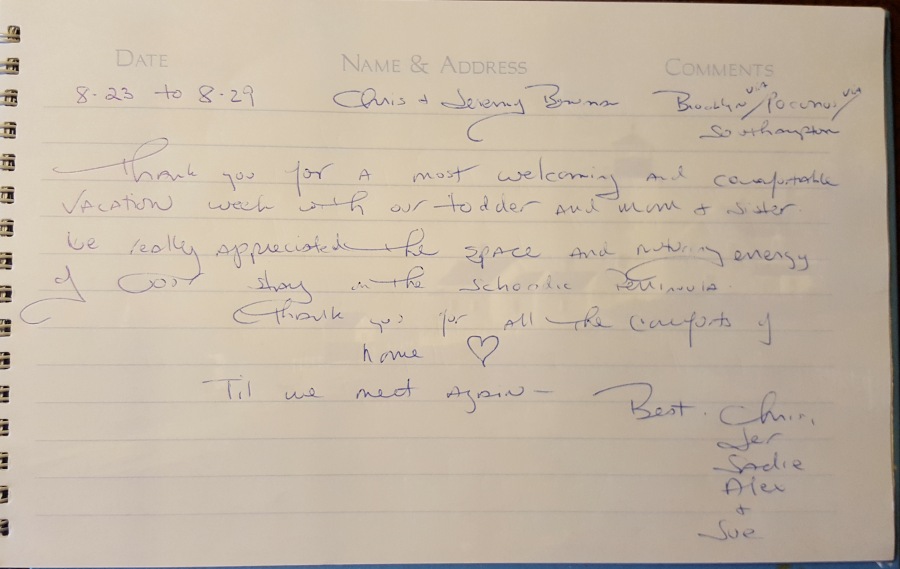 DATE NAME & ADDRESS COMMENTS
8.23 to 8.29 Chris + Jeremy Bowman Brooklyn/via Poconos/via
Southampton
Thank you for a most welcoming and comfortable
vacation week with our todder and mom + sister.
We really appreciated the space and nuturing energy
of our stay in the Schoodic Penninula.
Thank you for all the comforts of
home ♡
Til we meet again—
Best. Chris,
Jer
Sadie
Alex
+
Sue